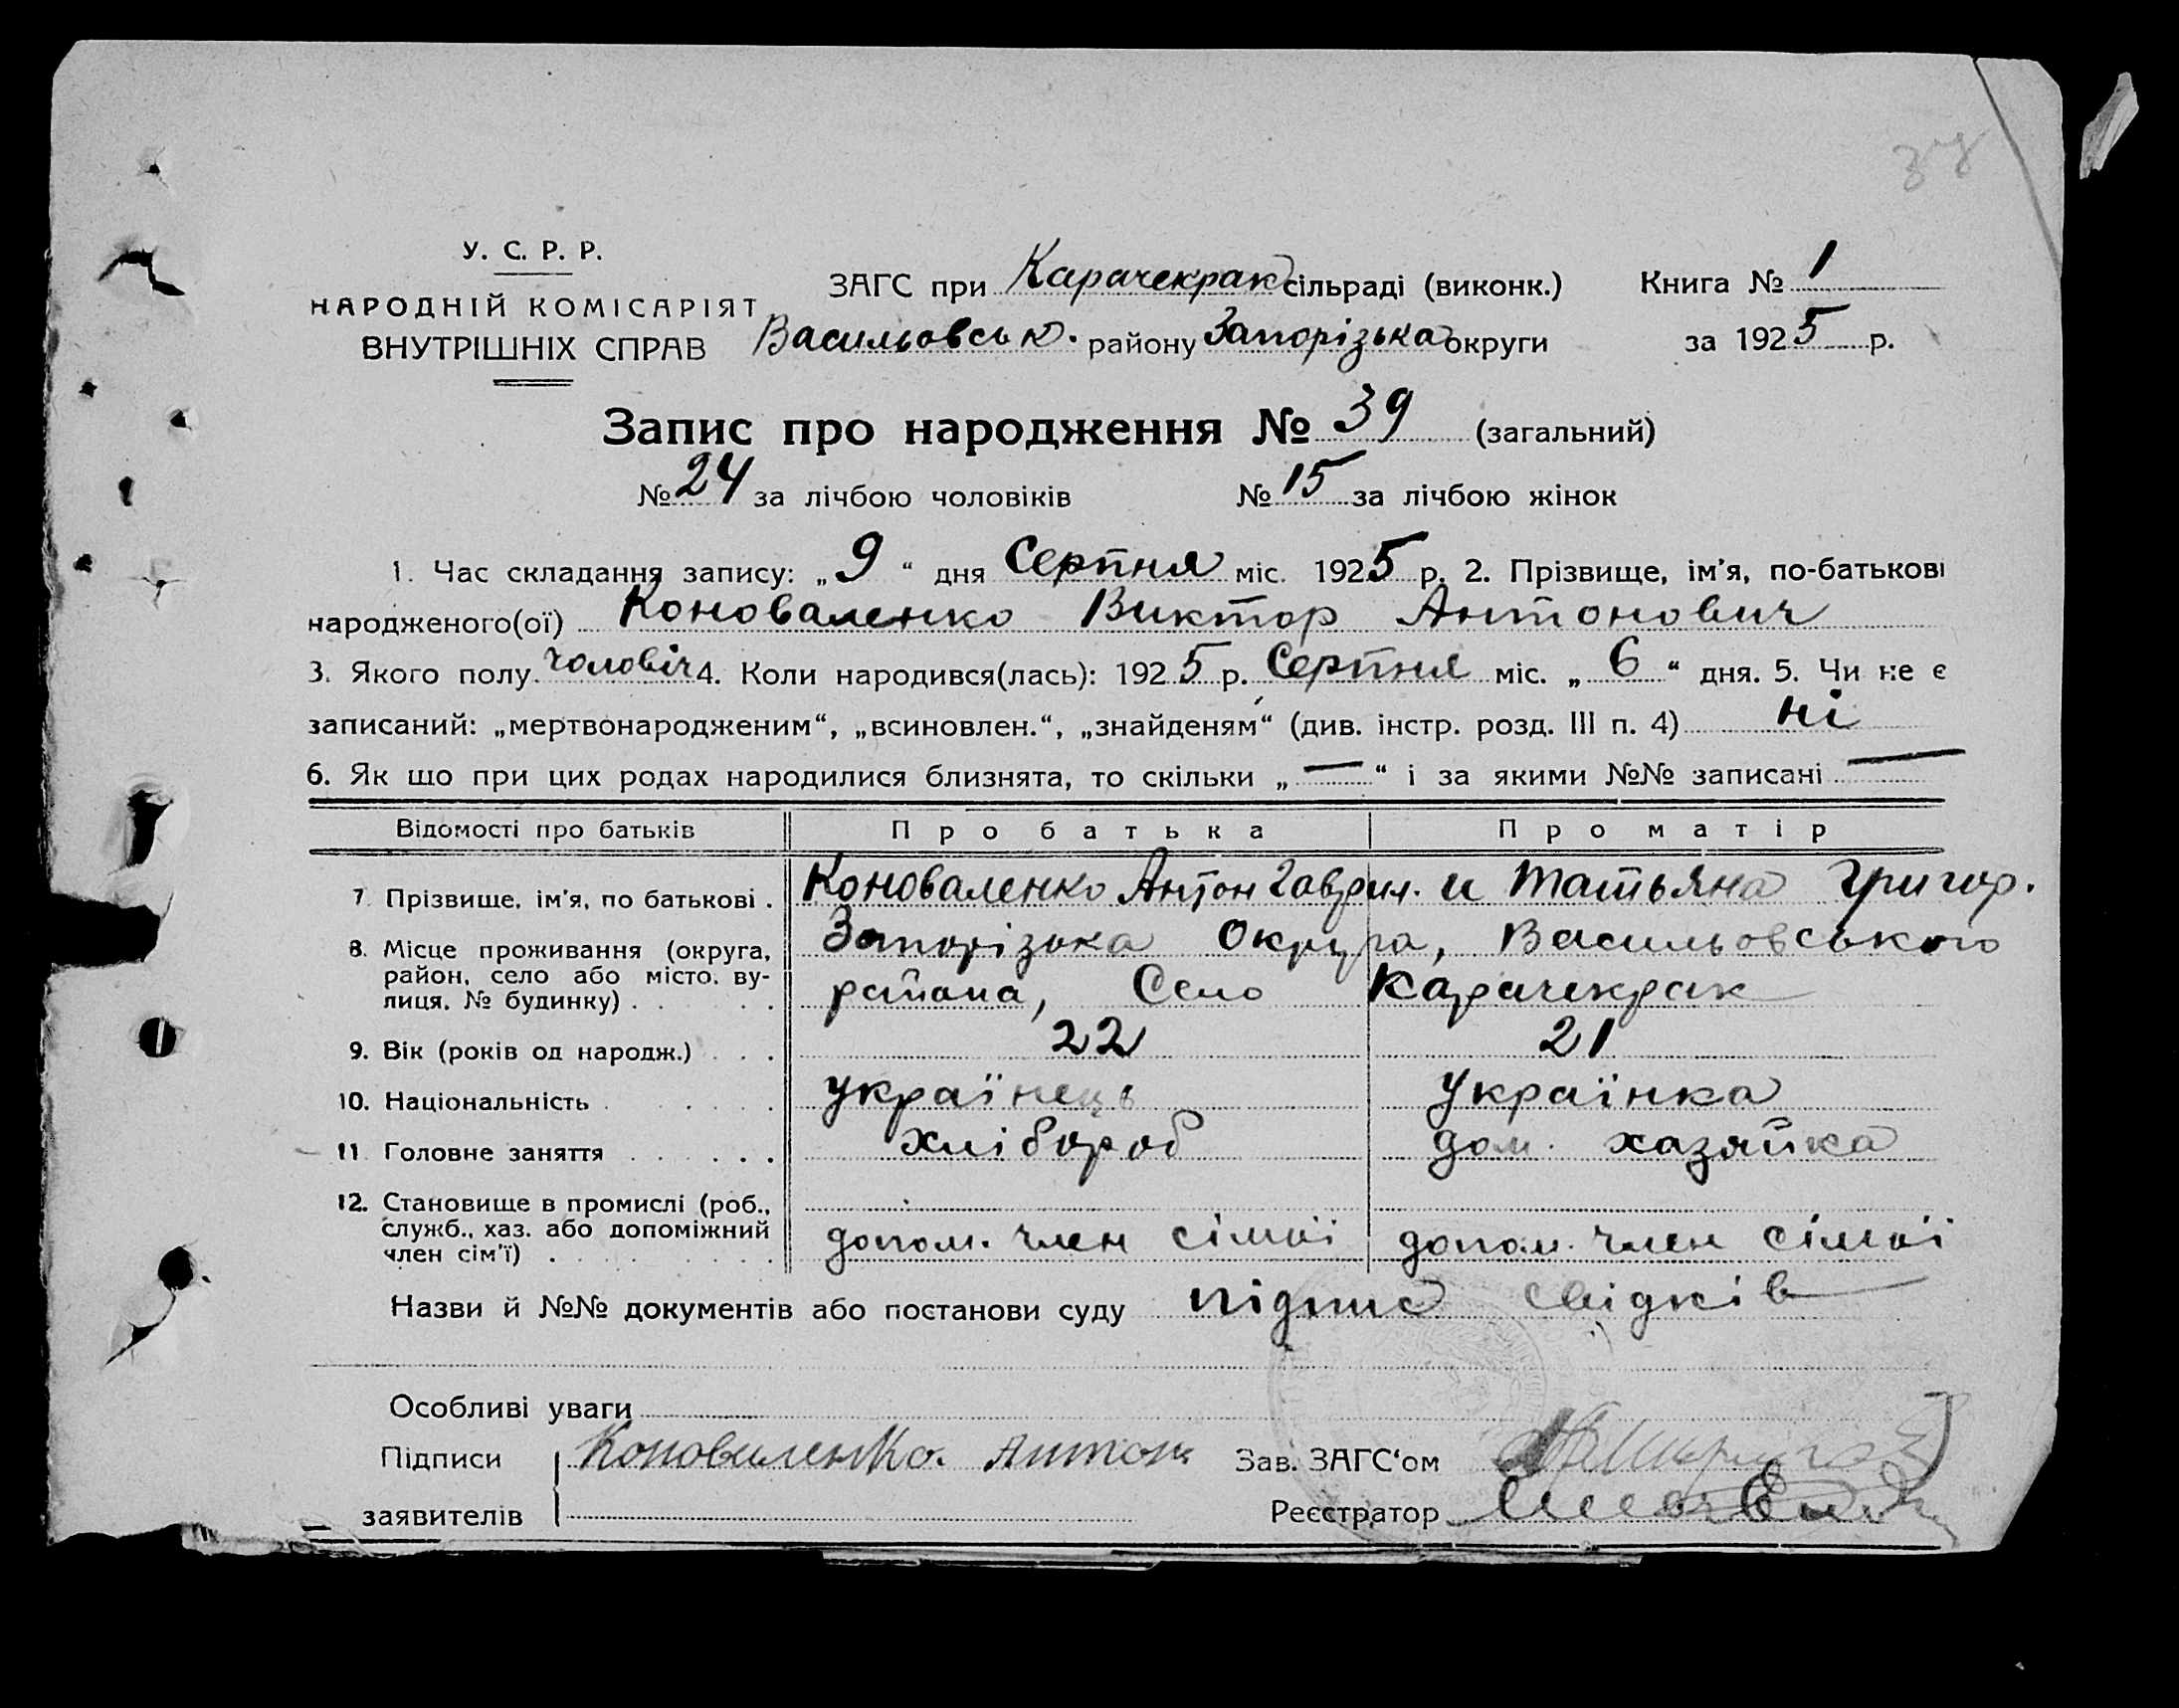 37
У. С. Р. Р.
НАРОДНІЙ КОМІСАРІЯТ
ВНУТРІШНІХ СПРАВ
ЗАГС при Карачекрак сільраді (виконк.) Книга № 1
Васильовськ. району Запорізька округи за 1925 р.
Запис про народження № 39 (загальний)
№ 24 за лічбою чоловіків № 15 за лічбою жінок
1. Час складання запису: „9“ дня Серпня міс. 1925 р. 2. Прізвище, ім'я, по-батькові
народженого(ої) Коноваленко Виктор Антонович
3. Якого полу чоловіч 4. Коли народився(лась): 1925 р. Серпня міс. „6“ дня. 5. Чи не є
записаний: „мертвонародженим“, „всиновлен.“, „знайденям“ (див. інстр. розд. III п. 4) ні
6. Як що при цих родах народилися близнята, то скільки „—“ і за якими №№ записані —
Відомості про батьків Про батька Про матір
7. Прізвище, ім'я, по батькові . Коноваленко Антон Гаврил. и Татьяна Григор.
8. Місце проживання (округа, Запорізька Округа, Васильовського
район, село або місто, ву-
лиця, № будинку) . . . . района, Село Карачекрак
9. Вік (років од народж.) . . . 22 21
10. Національність . . . . . українець Українка
11. Головне заняття . . . . . . хлібороб дом. хазяйка
12. Становище в промислі (роб.,
служб., хаз. або допоміжний
член сім'ї) . . . . . . . допом. член сімьї допом. член сімьї
Назви й №№ документів або постанови суду підпис свідків
Особливі уваги
Підписи Коноваленко. Антон Зав. ЗАГС‘ом
заявителів Реєстратор